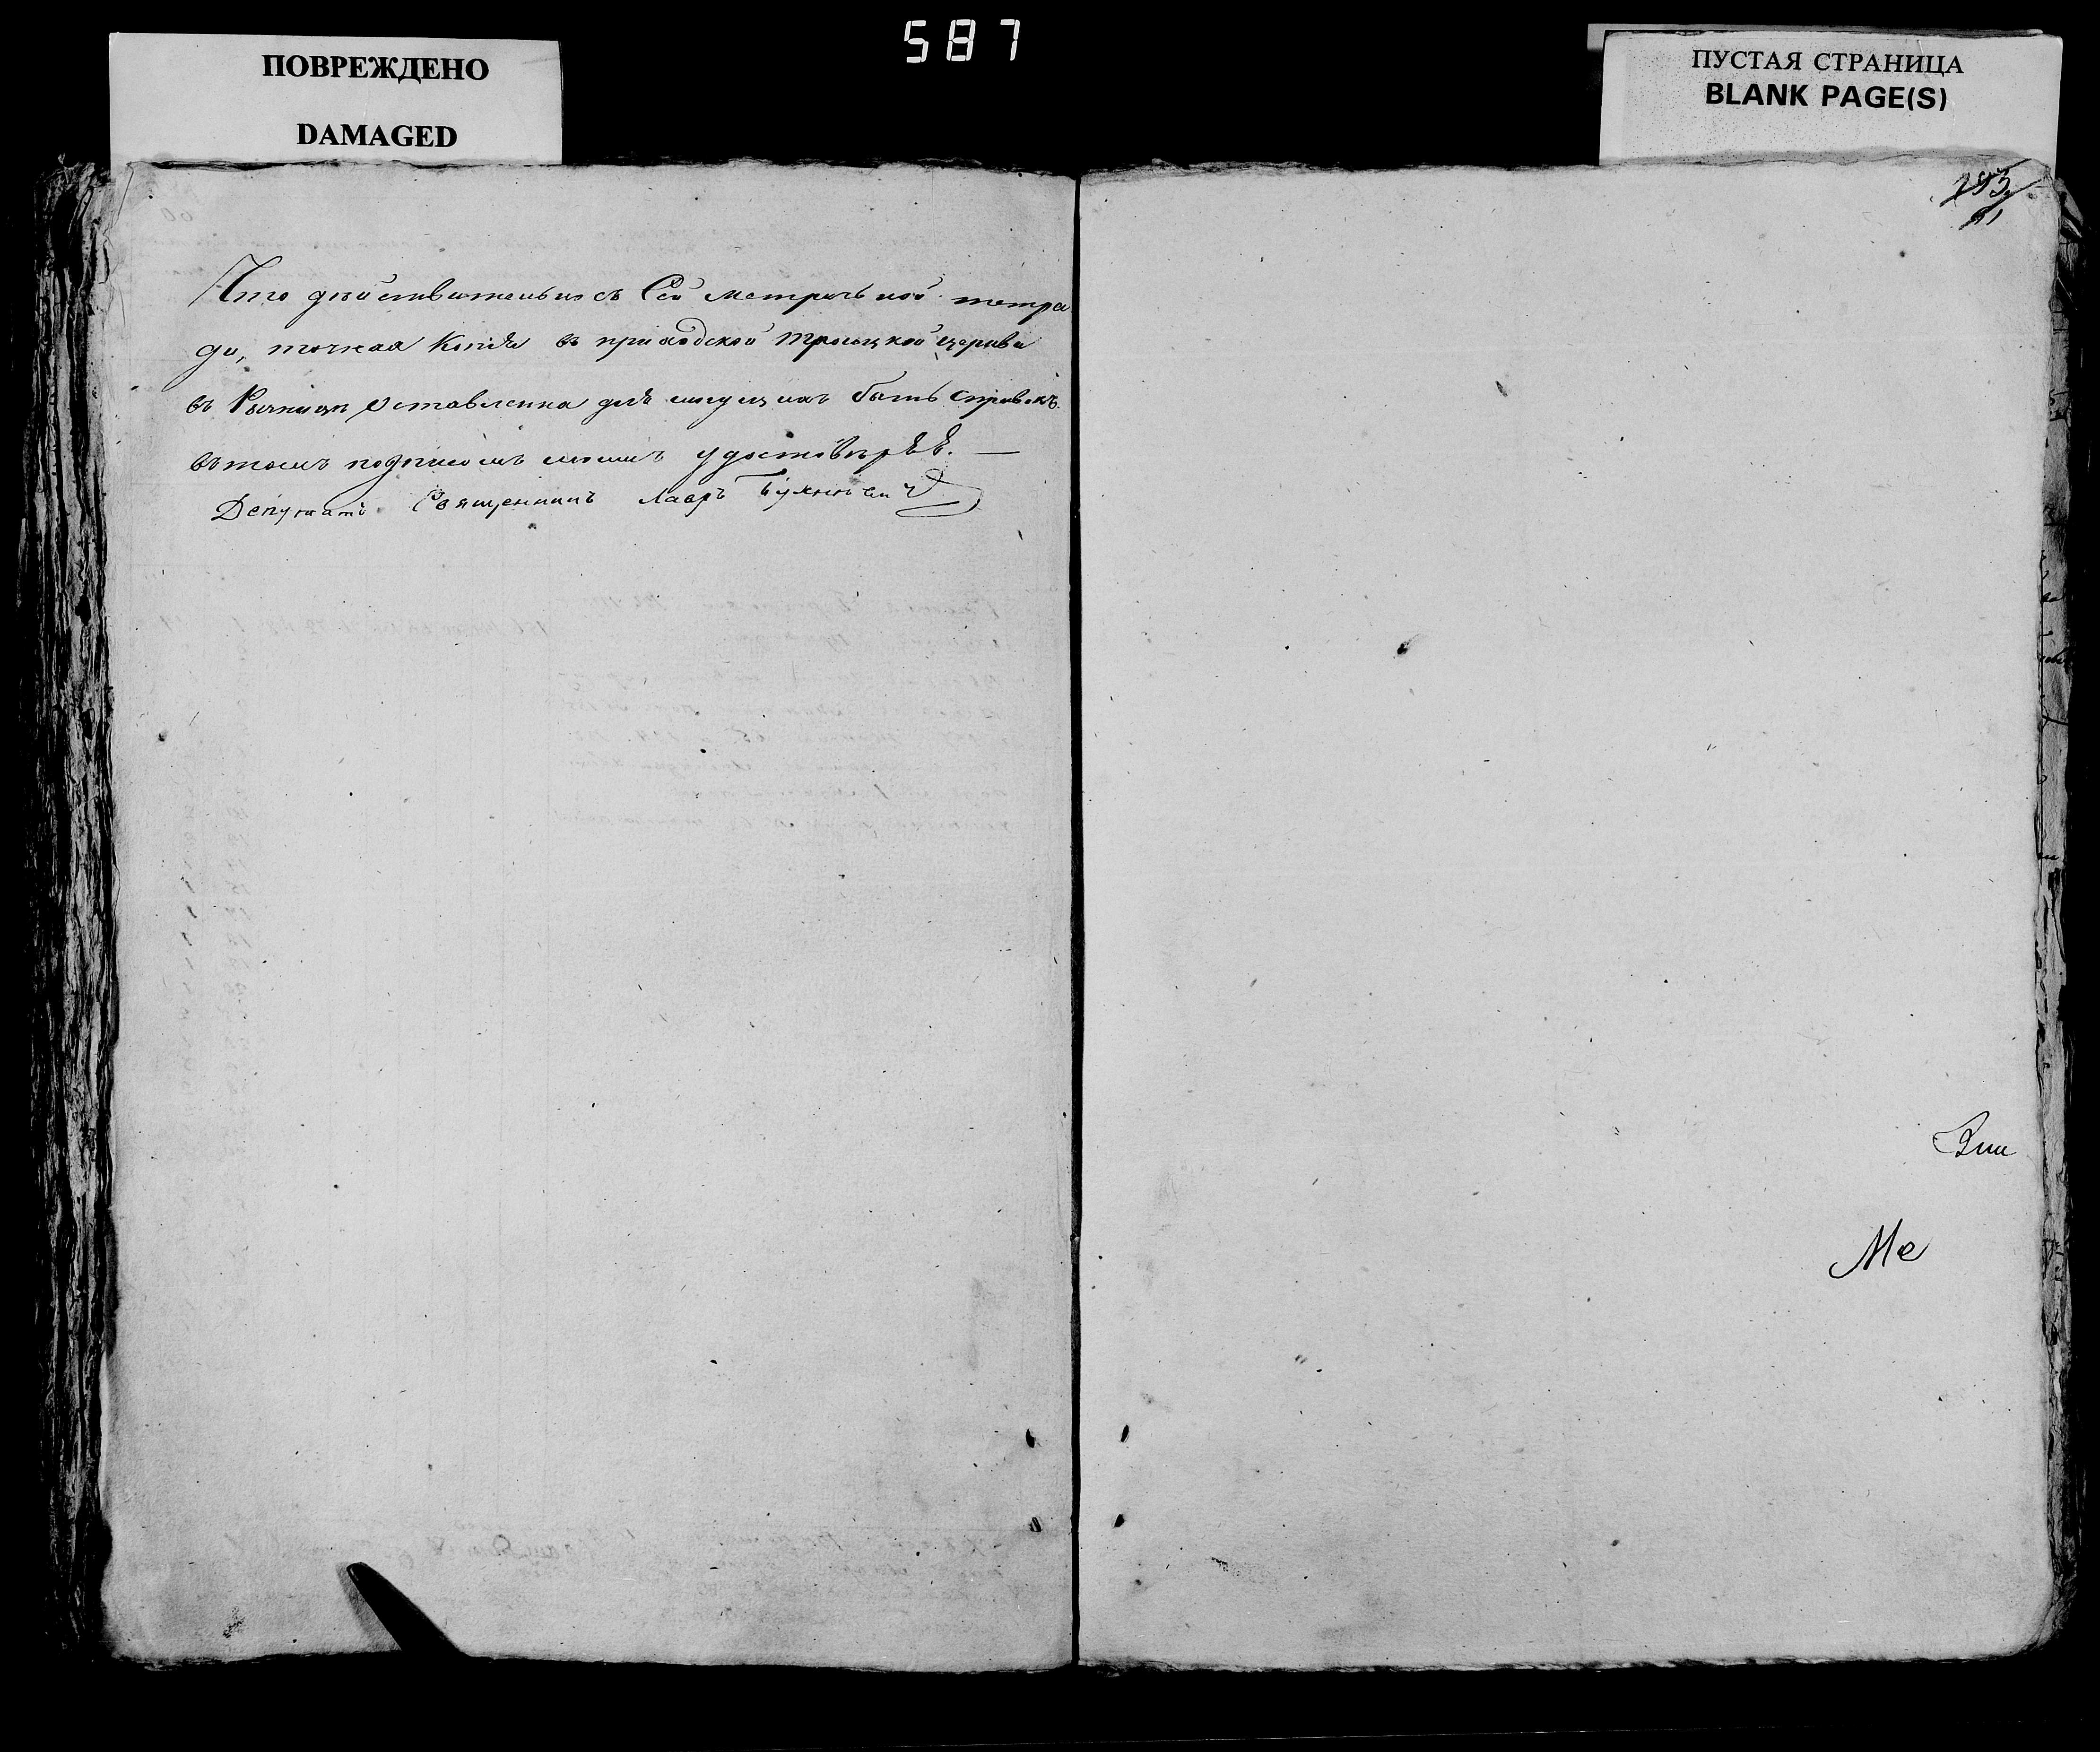 587
ПОВРЕЖДЕНО
DAMAGED
ПУСТАЯ СТРАНИЦА
BLANK PAGE(S)
293
Что действительно съ Сей метричьной тетра
ди, точная Копія въ приходской Троицкой церкви
въ оставленна для могущихъ быть справокъ.
въ томъ подписомъ моимъ удостовѣряя. —
Депутатъ Священникъ Лавръ
Вни
Ме